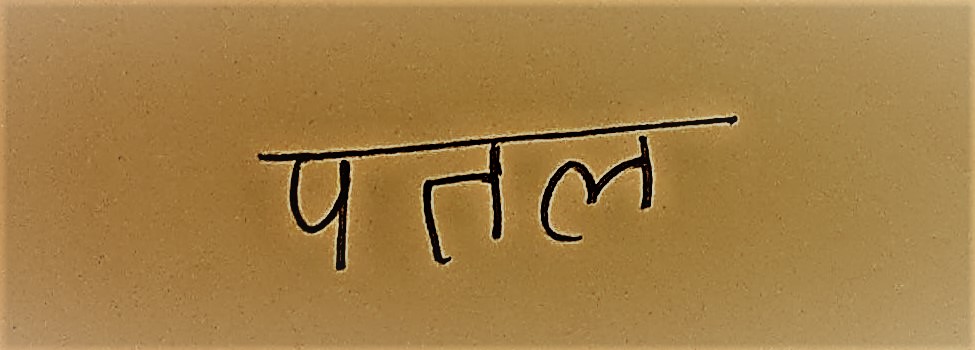 पतल